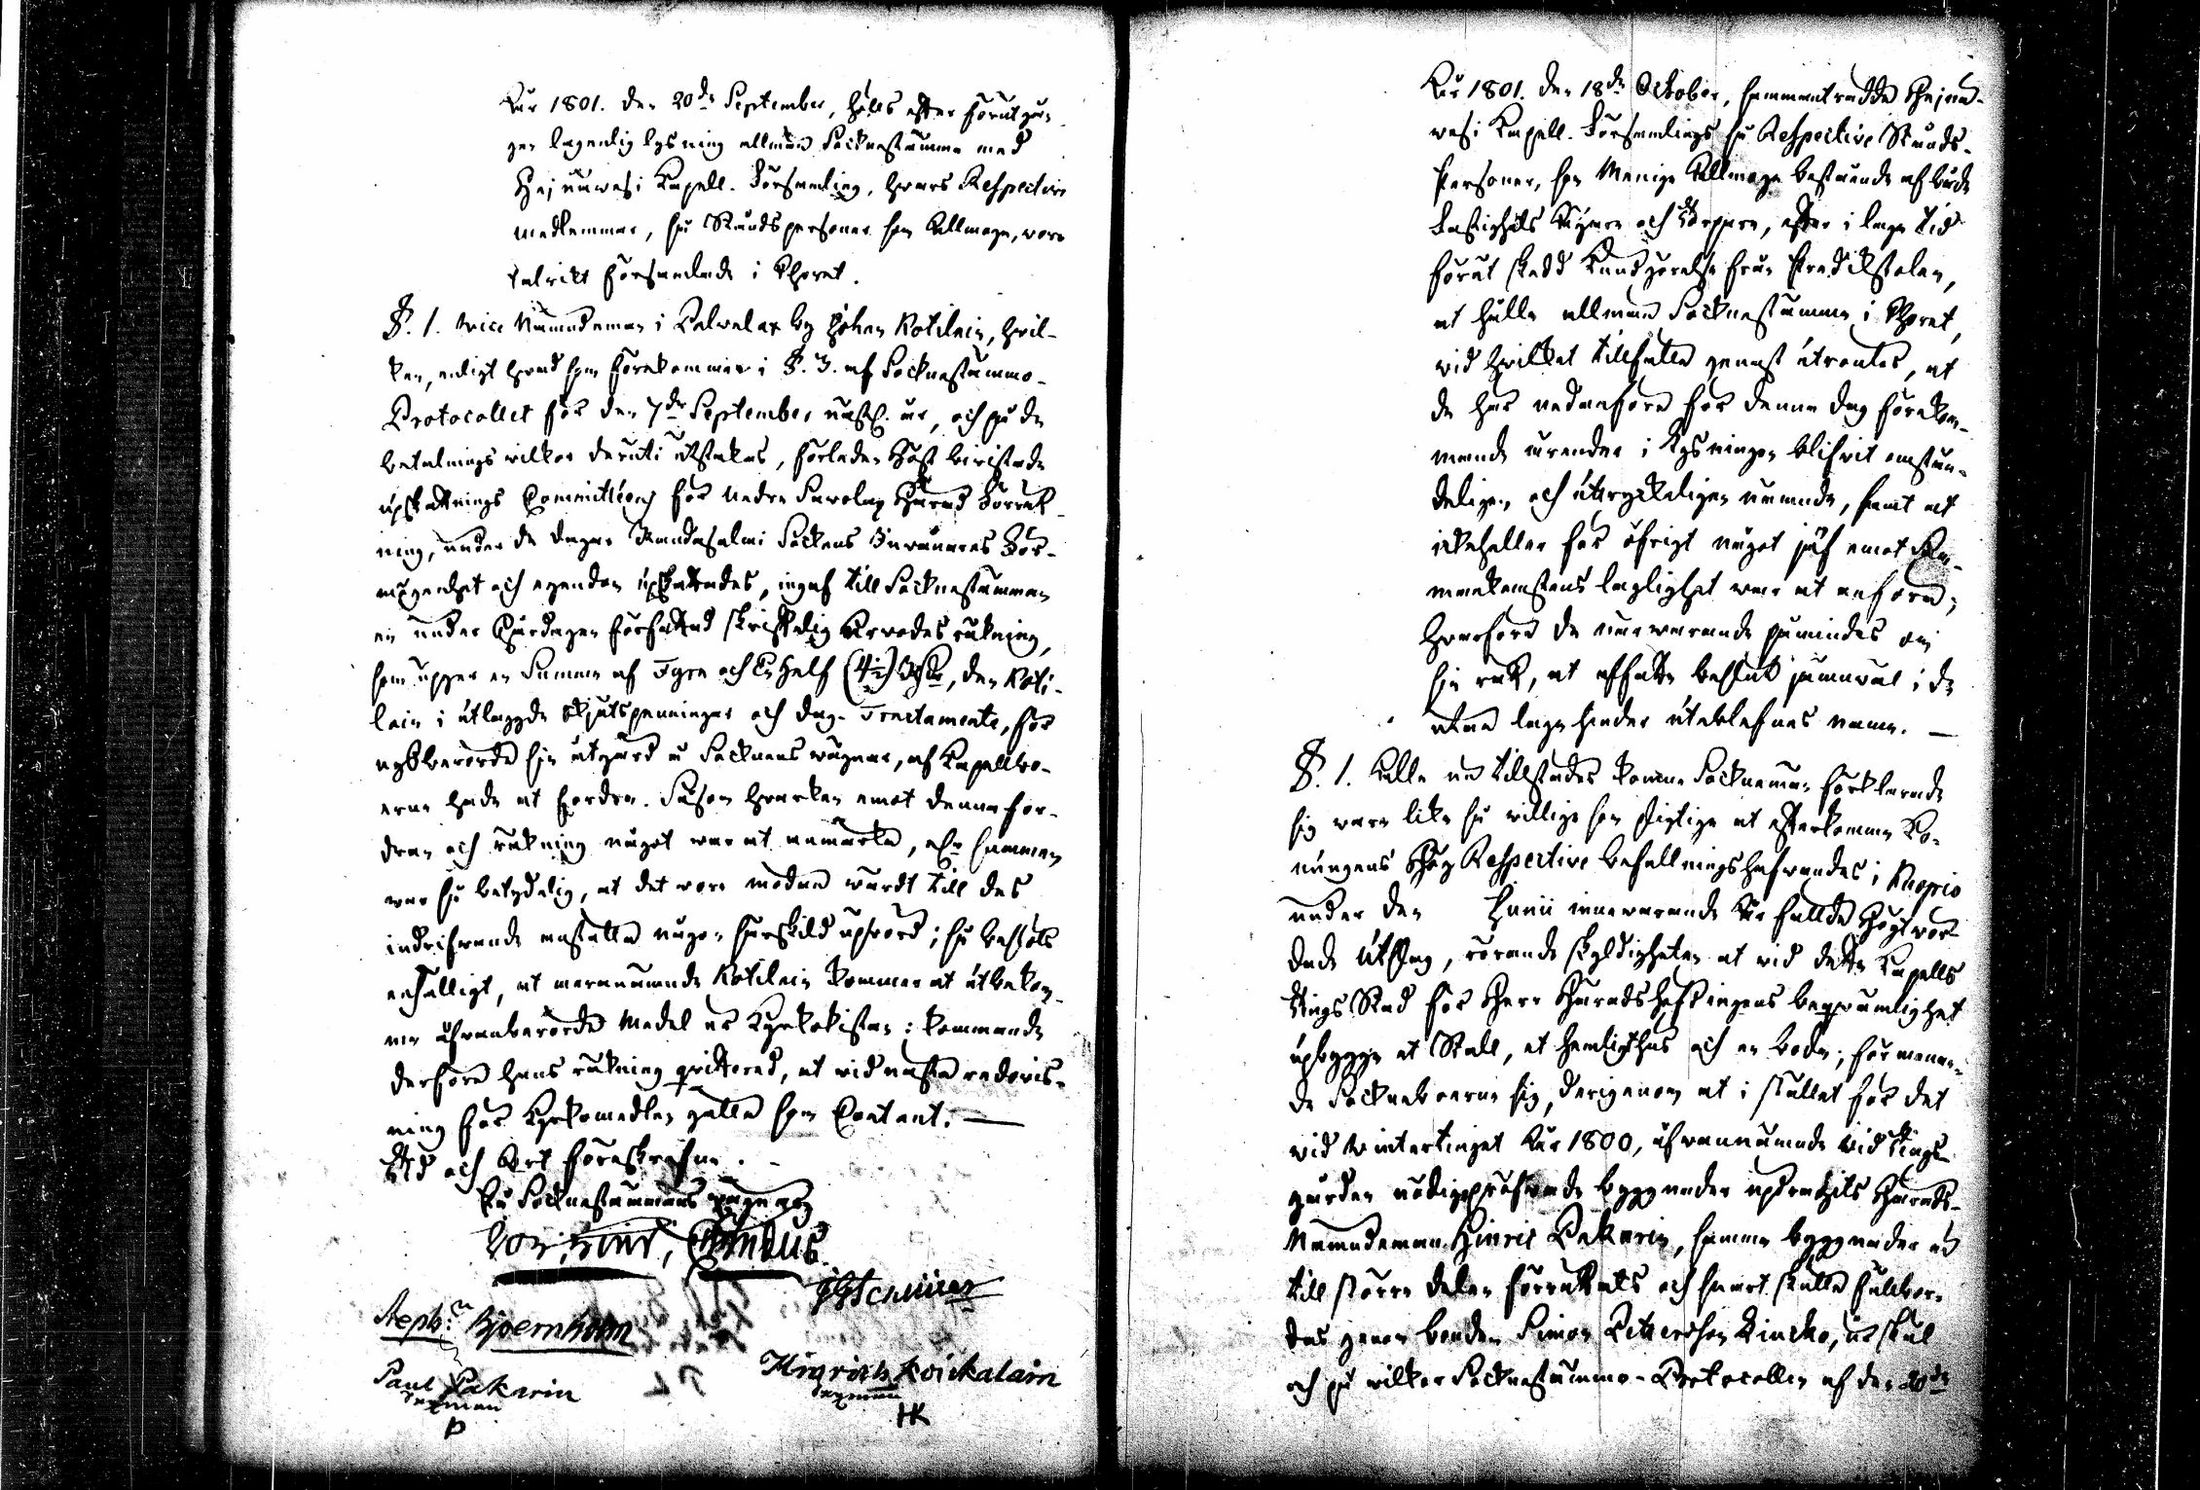 År 1801. den 20de September, hölls efter förutgån-
gen lagenlig lysning allmän Socknestämma med
Haj naawesi Kapell-Församling, hwars Respective
medlemmar, så Ståndspersoner som Allmoge, woro
talrikt församlade i Choret.
§. 1. Vice Nämndeman i Palwalax by Johan Kotilain, hwil-
ken, enligt hwad som förekommer i §. 3. af Socknestämmo-
Protocollet för den 7de September näst. år, och på de
betalnings wilkor deruti utstakas, förleden Höst biwistade
upskattnings Committéen för Nedra Savolax Härad Förrätt-
ning, under de dagar Randasalmi Sockens Inwånares För-
mögenhet och egendom upskattades, ingaf till Socknestämman
en under Edgången författad skriftelig Arvodes räkning,
som upger en Summa af Fyra och En half (4½) Rdr, den Koti-
lain i utlagde skjutspenningar och dag-Tractamente, för
nyssberörde sin utgärd å Socknens wägnar, af Kapellbo-
erne hade at fordra. Såsom hwarken emot denna for-
dran och räkning något war at anmärka, eller summan
war så betydelig, at det wore mödan wärdt till des
indrifwande anställa någon särskild upbörd; så beslöts
enhälligt, at mernämnde Kotilain kommer at utbekom-
ma ofwanberörde Medel ur Kyrkokistan: kommande
derföre hans räkning qvitterad, at wid nästa redovis-
ning för Kyrkomedlen gälla som Contant. —
År och Ort föreskrefne.
På Socknestämmans wägnar
Steph: Bjoernholm
Paul Pakarin
sexman
P
Hinrich Koickalain
sexman
HK
År 1801. den 18de October, sammanträdde Hajnå-
wesi Kapell-Församlings så Respective Stånds-
Personer, som Menige Allmoge bestående af både
Fastighets Ägare och Torppare, efter i laga tid
förut skedd Kundgörelse från Predikstolen,
at hålla allmän Socknestämma i Choret,
wid hwilket tillfälle genast utröntes, at
de här nedanföre för denna dag förekom-
mande ärender i Lysningen blifwit omstän-
deligen och uttryckeligen nämnde, samt at
icke heller för öfrigt något jäf emot Sam-
mankomstens laglighet war at anföra;
hwarföre de närwarande påmindes om
sin rätt, at affatta beslut jämwäl i de
utan laga hinder uteblefnas namn. —
§. 1. Alla nu tillstädes komne Socknemän förklarade
sig wara lika så willige som skyldige at efterkomma Ko-
nungens Höga Respective Befallningshafwandes i Kuopio
under den Junii innewarande År fällde Högtwör-
dade Utslag, rörande skyldigheten at wid detta Kapells
Tings Stad för Herr Häradshöfdingens beqwämlighet
upbygga et Stall, et hemlighus och en bod; förmenan-
de Socknboerne sig, derigenom at i stället för det
wid Wintertinget År 1800, ofwannämnde wid Tings-
gården nödigpröfwade byggnader updragits Härads-
Nämndeman Hinric Pakarin, samma byggnader nu
till större delen förrättats och snart skulle fullbor-
das genom bonden Simon Pettersson Kincko, ur skäl
och på wilkor Socknestämmo-Protocollen af den 20de